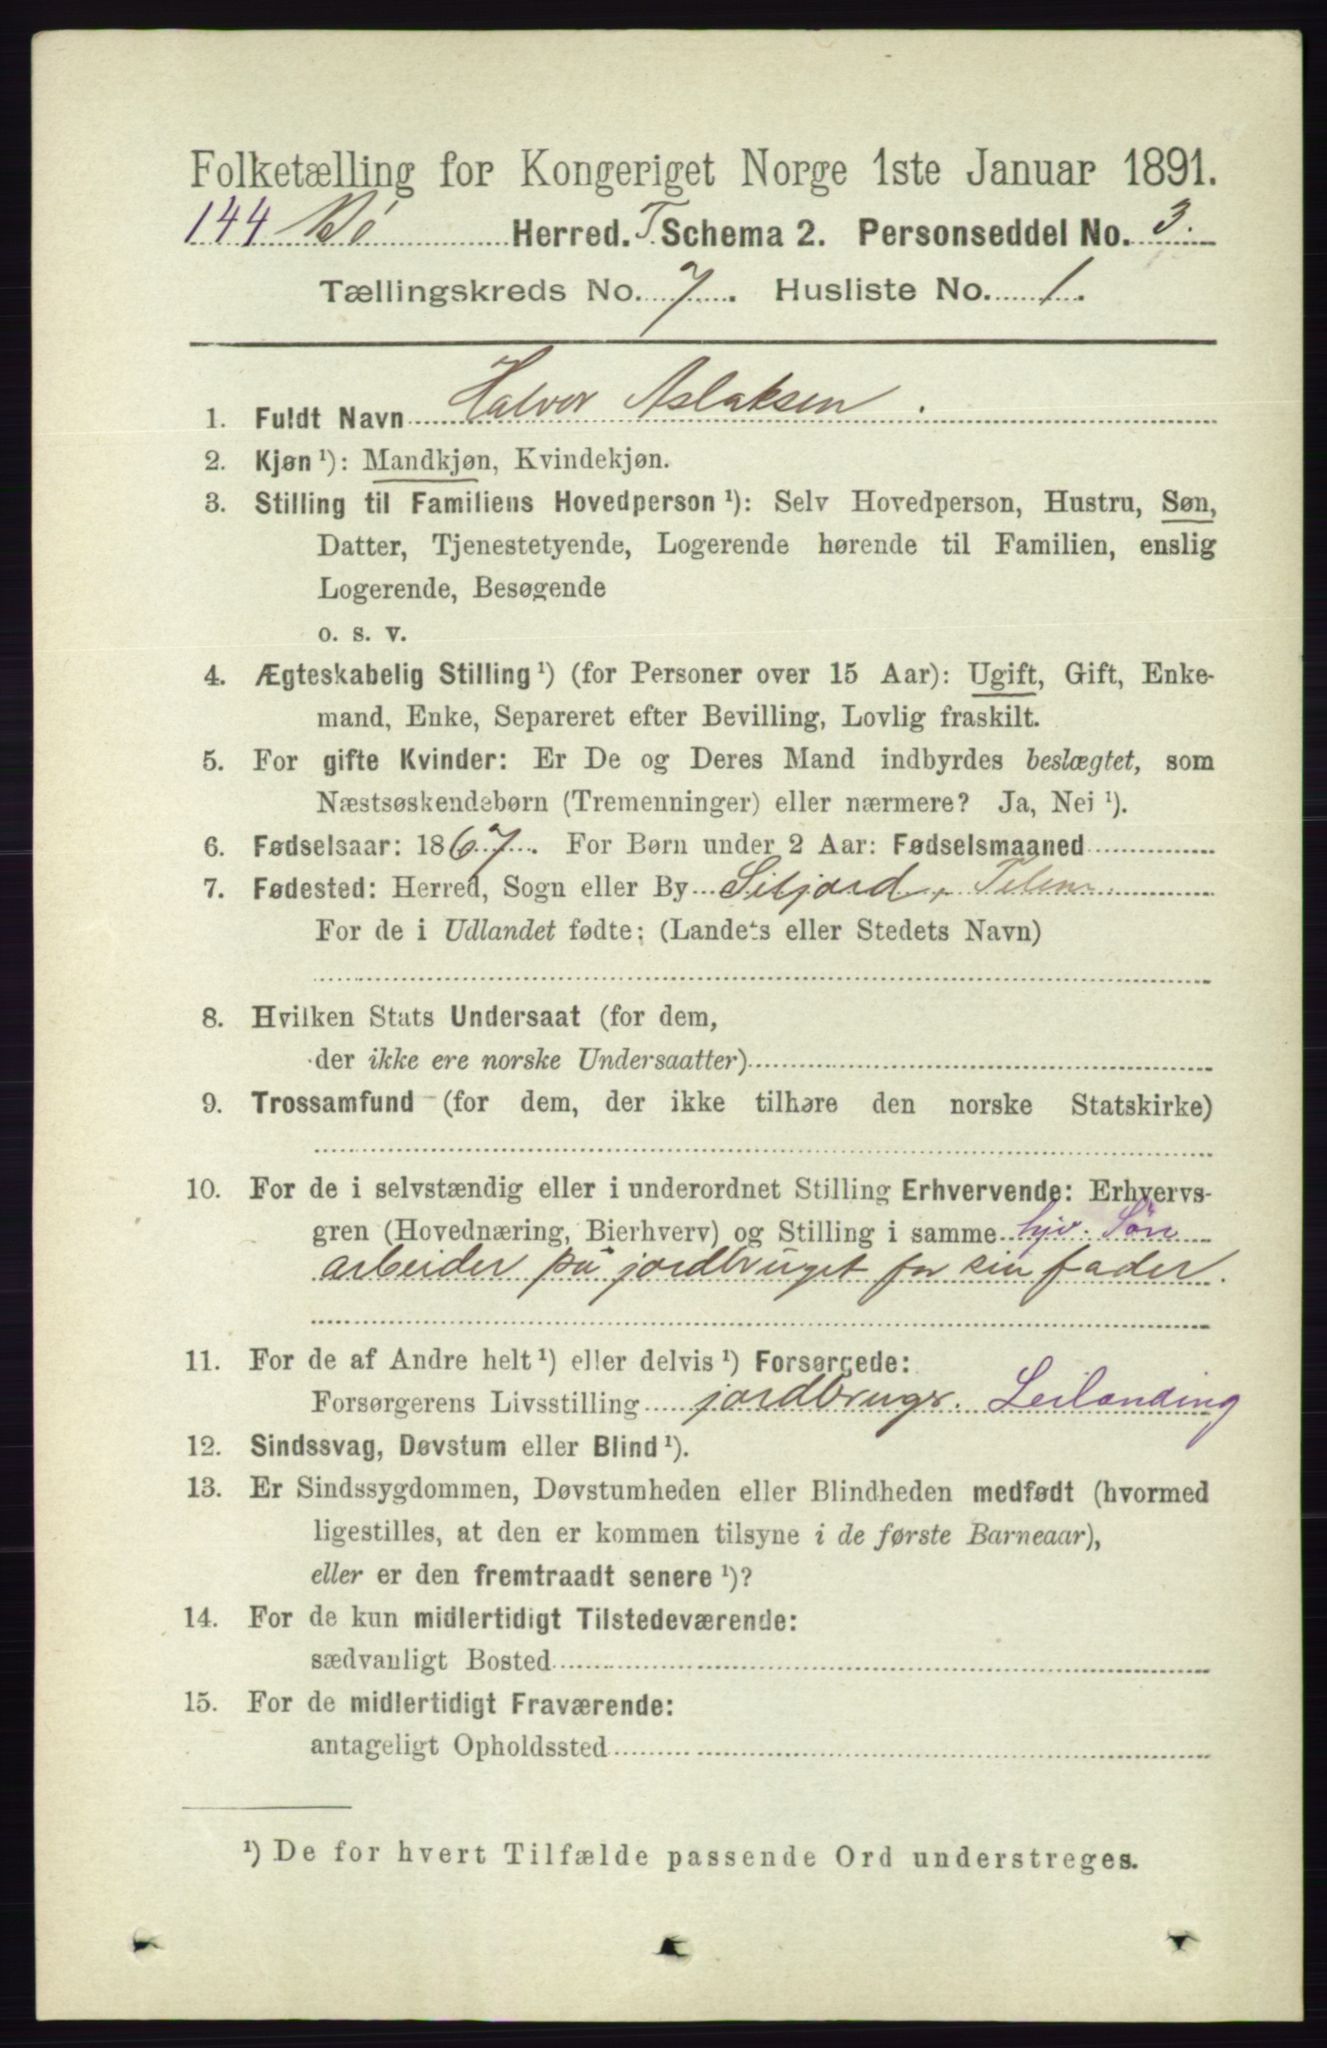 Folketælling for Kongeriget Norge 1ste Januar 1891.
144 Bø Herred. T. Schema 2. Personseddel No. 3.
Tællingskreds No. 7. Husliste No. 1.
1. Fuldt Navn Halvor Aslaksen.
2. Kjøn ¹): Mandkjøn, Kvindekjøn.
3. Stilling til Familiens Hovedperson ¹): Selv Hovedperson, Hustru, Søn,
Datter, Tjenestetyende, Logerende hørende til Familien, enslig
Logerende, Besøgende
o. s. v.
4. Ægteskabelig Stilling ¹) (for Personer over 15 Aar): Ugift, Gift, Enke-
mand, Enke, Separeret efter Bevilling, Lovlig fraskilt.
5. For gifte Kvinder: Er De og Deres Mand indbyrdes beslægtet, som
Næstsøskendebørn (Tremenninger) eller nærmere? Ja, Nei ¹).
6. Fødselsaar: 1867. For Børn under 2 Aar: Fødselsmaaned
7. Fødested: Herred, Sogn eller By Siljord, Telem
For de i Udlandet fødte: (Landets eller Stedets Navn)
8. Hvilken Stats Undersaat (for dem,
der ikke ere norske Undersaatter)
9. Trossamfund (for dem, der ikke tilhøre den norske Statskirke)
10. For de i selvstændig eller i underordnet Stilling Erhvervende: Erhvervs-
gren (Hovednæring, Bierhverv) og Stilling i samme hjv. Søn
arbeider på jordbruget for sin fader.
11. For de af Andre helt ¹) eller delvis ¹) Forsørgede:
Forsørgerens Livsstilling jordbruger. Leilending
12. Sindssvag, Døvstum eller Blind ¹).
13. Er Sindssygdommen, Døvstumheden eller Blindheden medfødt (hvormed
ligestilles, at den er kommen tilsyne i de første Barneaar),
eller er den fremtraadt senere ¹)?
14. For de kun midlertidigt Tilstedeværende:
sædvanligt Bosted
15. For de midlertidigt Fraværende:
antageligt Opholdssted
¹) De for hvert Tilfælde passende Ord understreges.